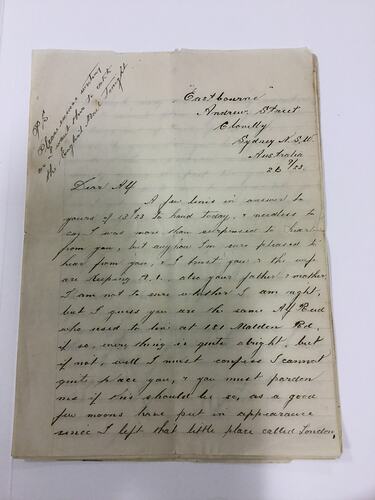 P.S.
Please excuse writing
as I want this to catch
the English Mail tonight
"Eastbourne"
Andrew Street
Clovelly
Sydney N.S.W.
Australia
26/9/23.
Dear Alf
A few lines in answer to
yours of 13/8/23 to hand today, & needless to
say I was more than surprised to hear
from you, but anyhow I'm sure pleased to
hear from you, & I trust you & the wife
are keeping A.1., also your father & mother,
I am not to sure whether I am right,
but I guess you are the same Alf Reid
who used to live at 181 Malden Rd,
if so, everything is quite alright, but
if not, well I must confess I cannot
quite place you, & you must pardon
me if this should be so, as a good
few moons have put in appearance
since I left that little place called London,